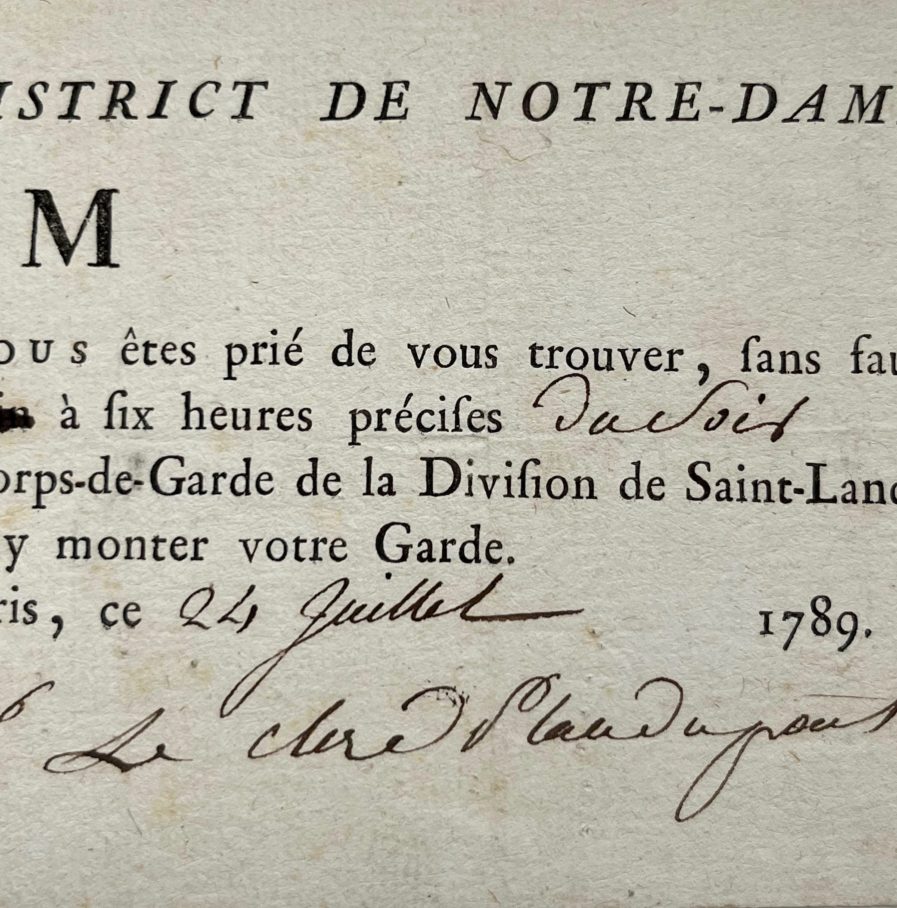 ISTRICT DE NOTRE-DAM
M
OUS êtes prié de vous trouver, ſans fau
à ſix heures préciſes du Soir
orps-de-Garde de la Diviſion de Saint-Land
y monter votre Garde.
ris, ce 24 Juillet 1789.
Le clerc